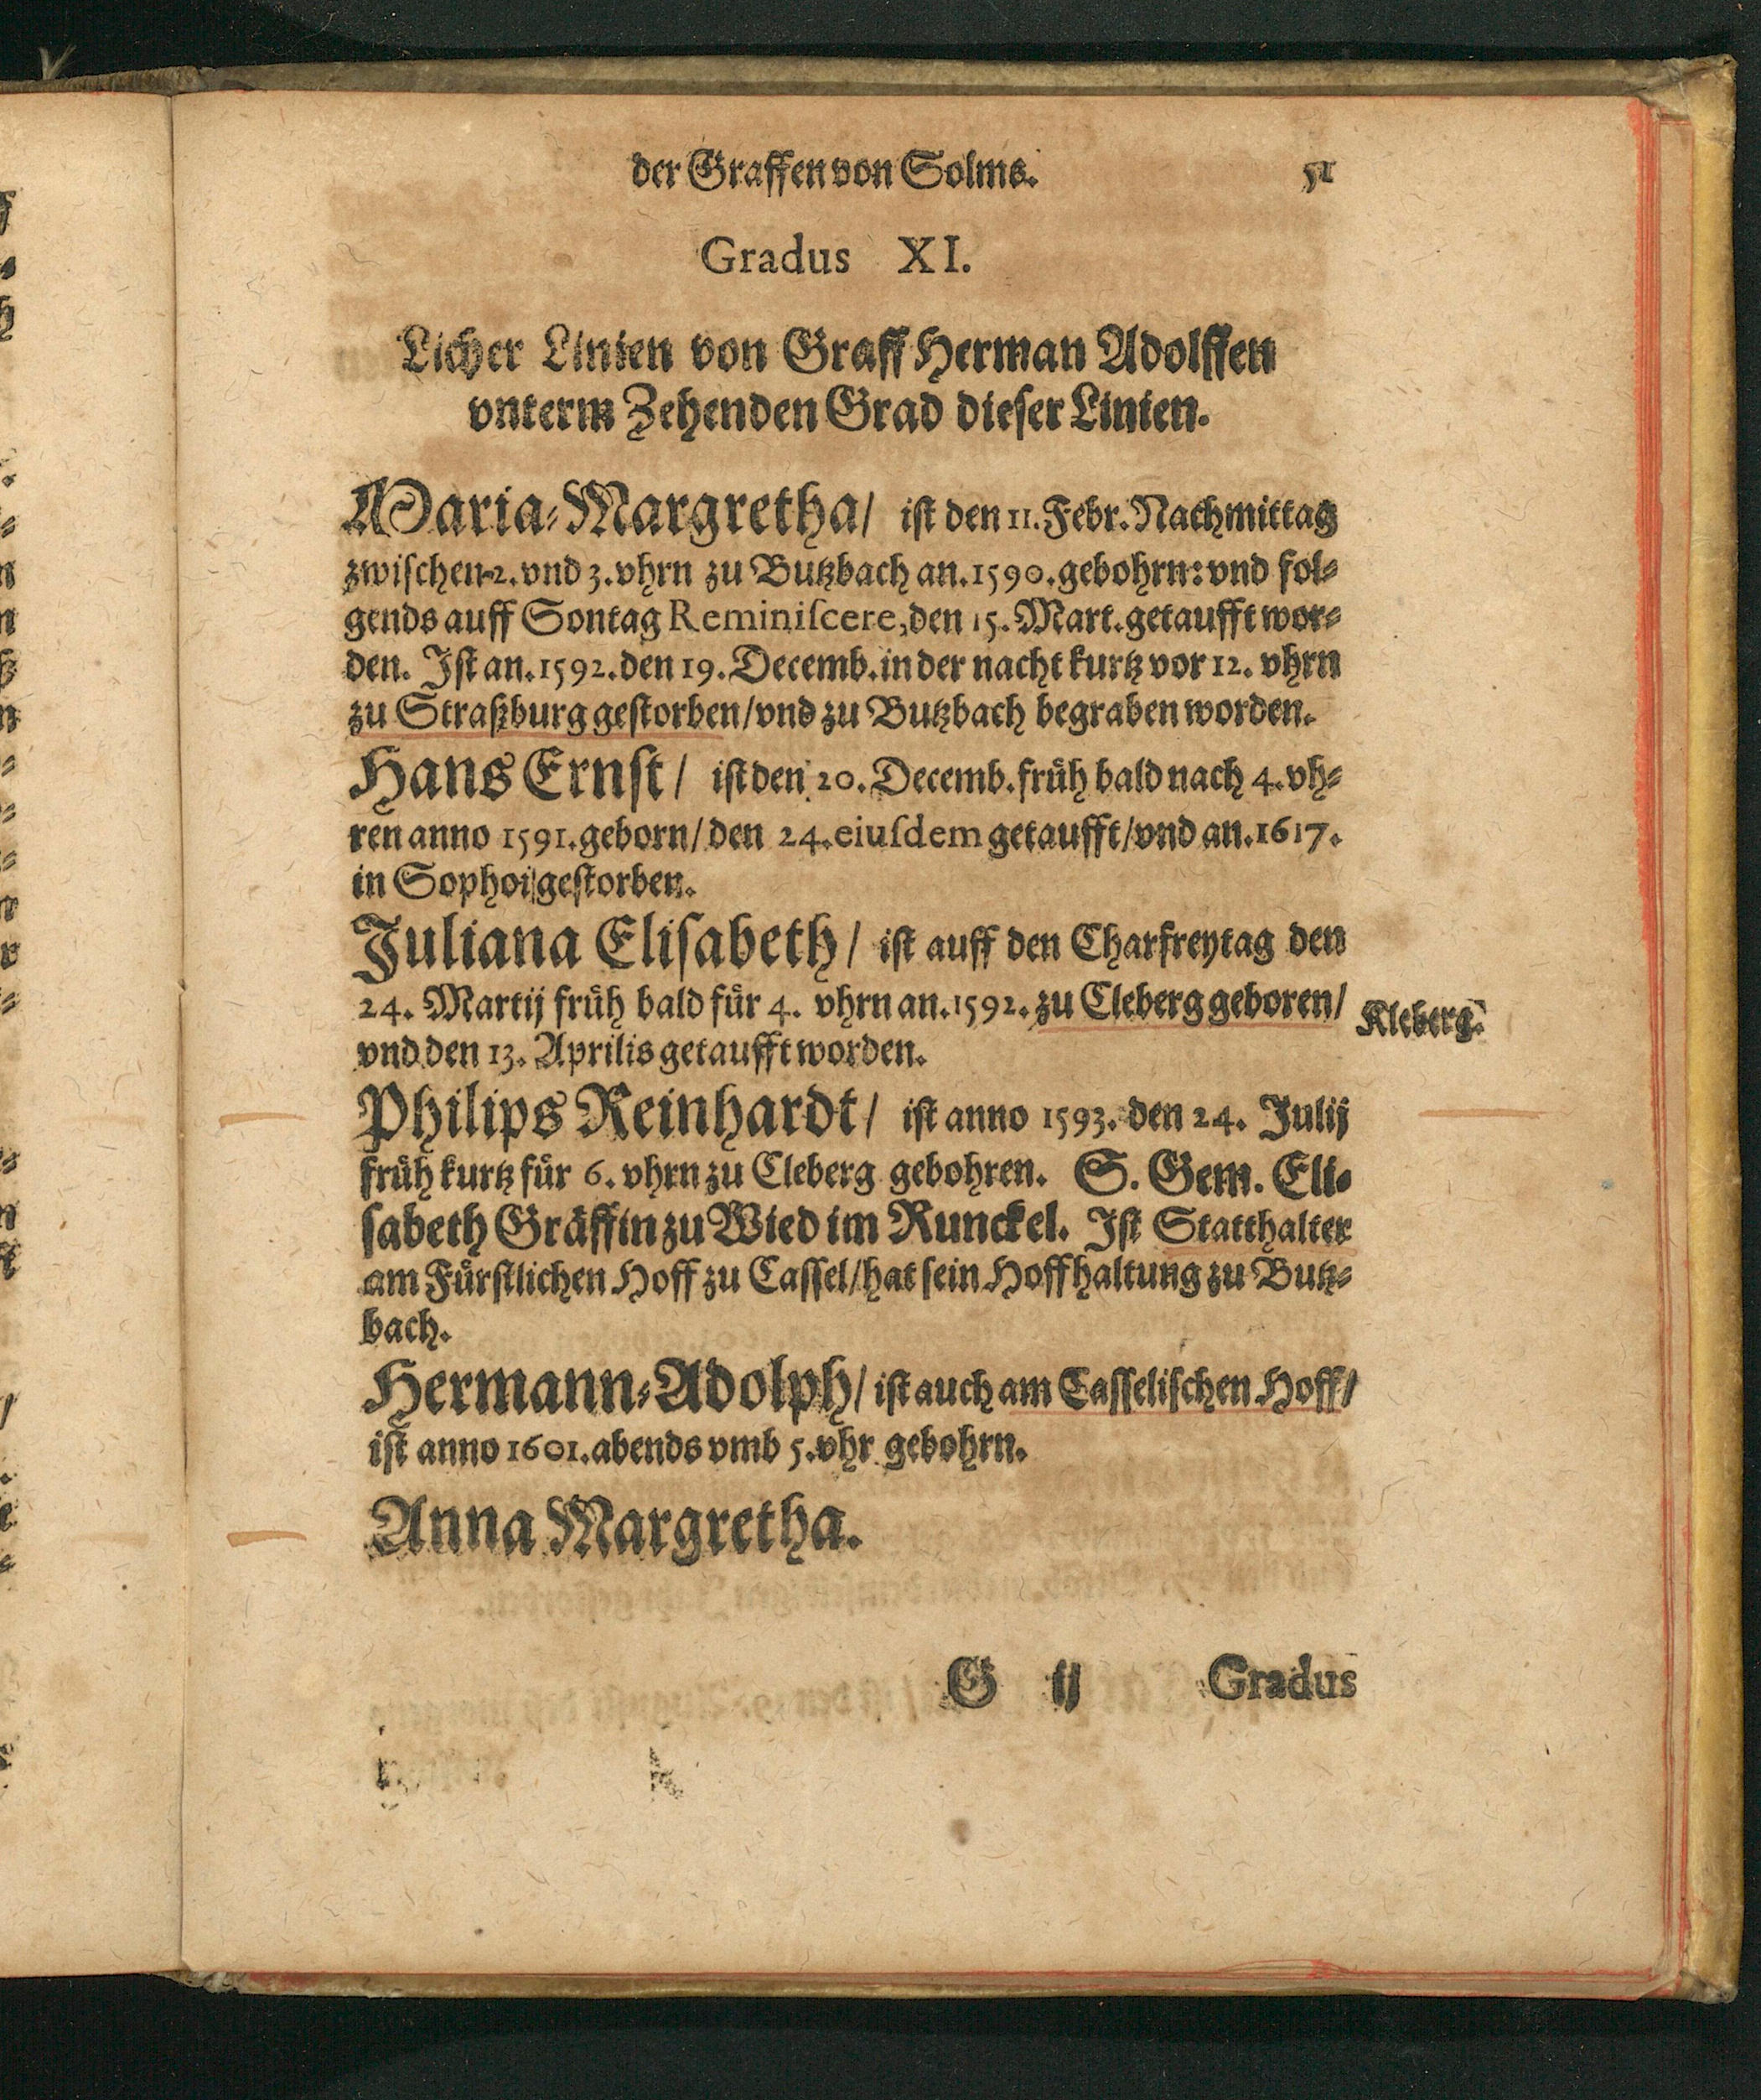 der Graffen von Solms. 51
Gradus XI.
Licher Linien von Graff Herman Adolffen
vnterm Zehenden Grad dieser Linien.
Maria-Margretha/ ist den 11. Febr. Nachmittag
zwischen 2. vnd 3. vhrn zu Butzbach an. 1590. gebohrn: vnd fol-
gends auff Sontag Reminiſcere, den 15. Mart. getaufft wor-
den. Ist an. 1592. den 19. Decemb. in der nacht kurtz vor 12. vhrn
zu Straßburg gestorben/ vnd zu Butzbach begraben worden.
Hans Ernst/ ist den 20. Decemb. früh bald nach 4. vh-
ren anno 1591. geborn/ den 24. eiuſdem getaufft/ vnd an. 1617.
in Sophoi gestorben.
Juliana Elisabeth/ ist auff den Charfreytag den
24. Martij früh bald für 4. vhrn an. 1592. zu Cleberg geboren/
Kleberg.
vnd den 13. Aprilis getaufft worden.
Philips Reinhardt/ ist anno 1593. den 24. Julij
früh kurtz für 6. vhrn zu Cleberg gebohren. S. Gem. Eli-
sabeth Gräffin zu Wied im Runckel. Ist Statthalter
am Fürstlichen Hoff zu Cassel/ hat sein Hoffhaltung zu Butz-
bach.
Hermann-Adolph/ ist auch am Casselischen Hoff/
ist anno 1601. abends vmb 5. vhr gebohrn.
Anna Margretha.
G ij Gradus